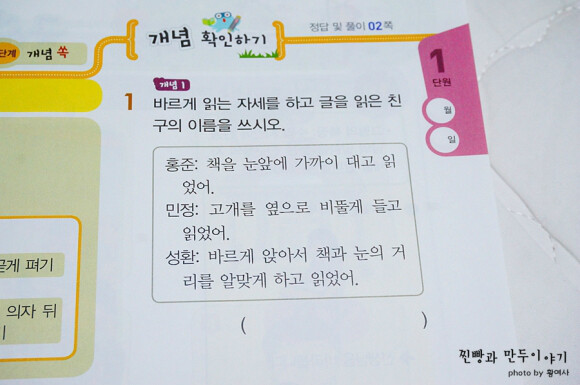 단계 개념 쏙
개념 확인하기
정답 및 풀이 02쪽
1
단원
월
일
개념 1
1 바르게 읽는 자세를 하고 글을 읽은 친
구의 이름을 쓰시오.
홍준: 책을 눈앞에 가까이 대고 읽
었어.
민정: 고개를 옆으로 비뚤게 들고
읽었어.
성환: 바르게 앉아서 책과 눈의 거
리를 알맞게 하고 읽었어.
( )
펴기
의자 뒤
찐빵과 만두이야기
photo by 황여사